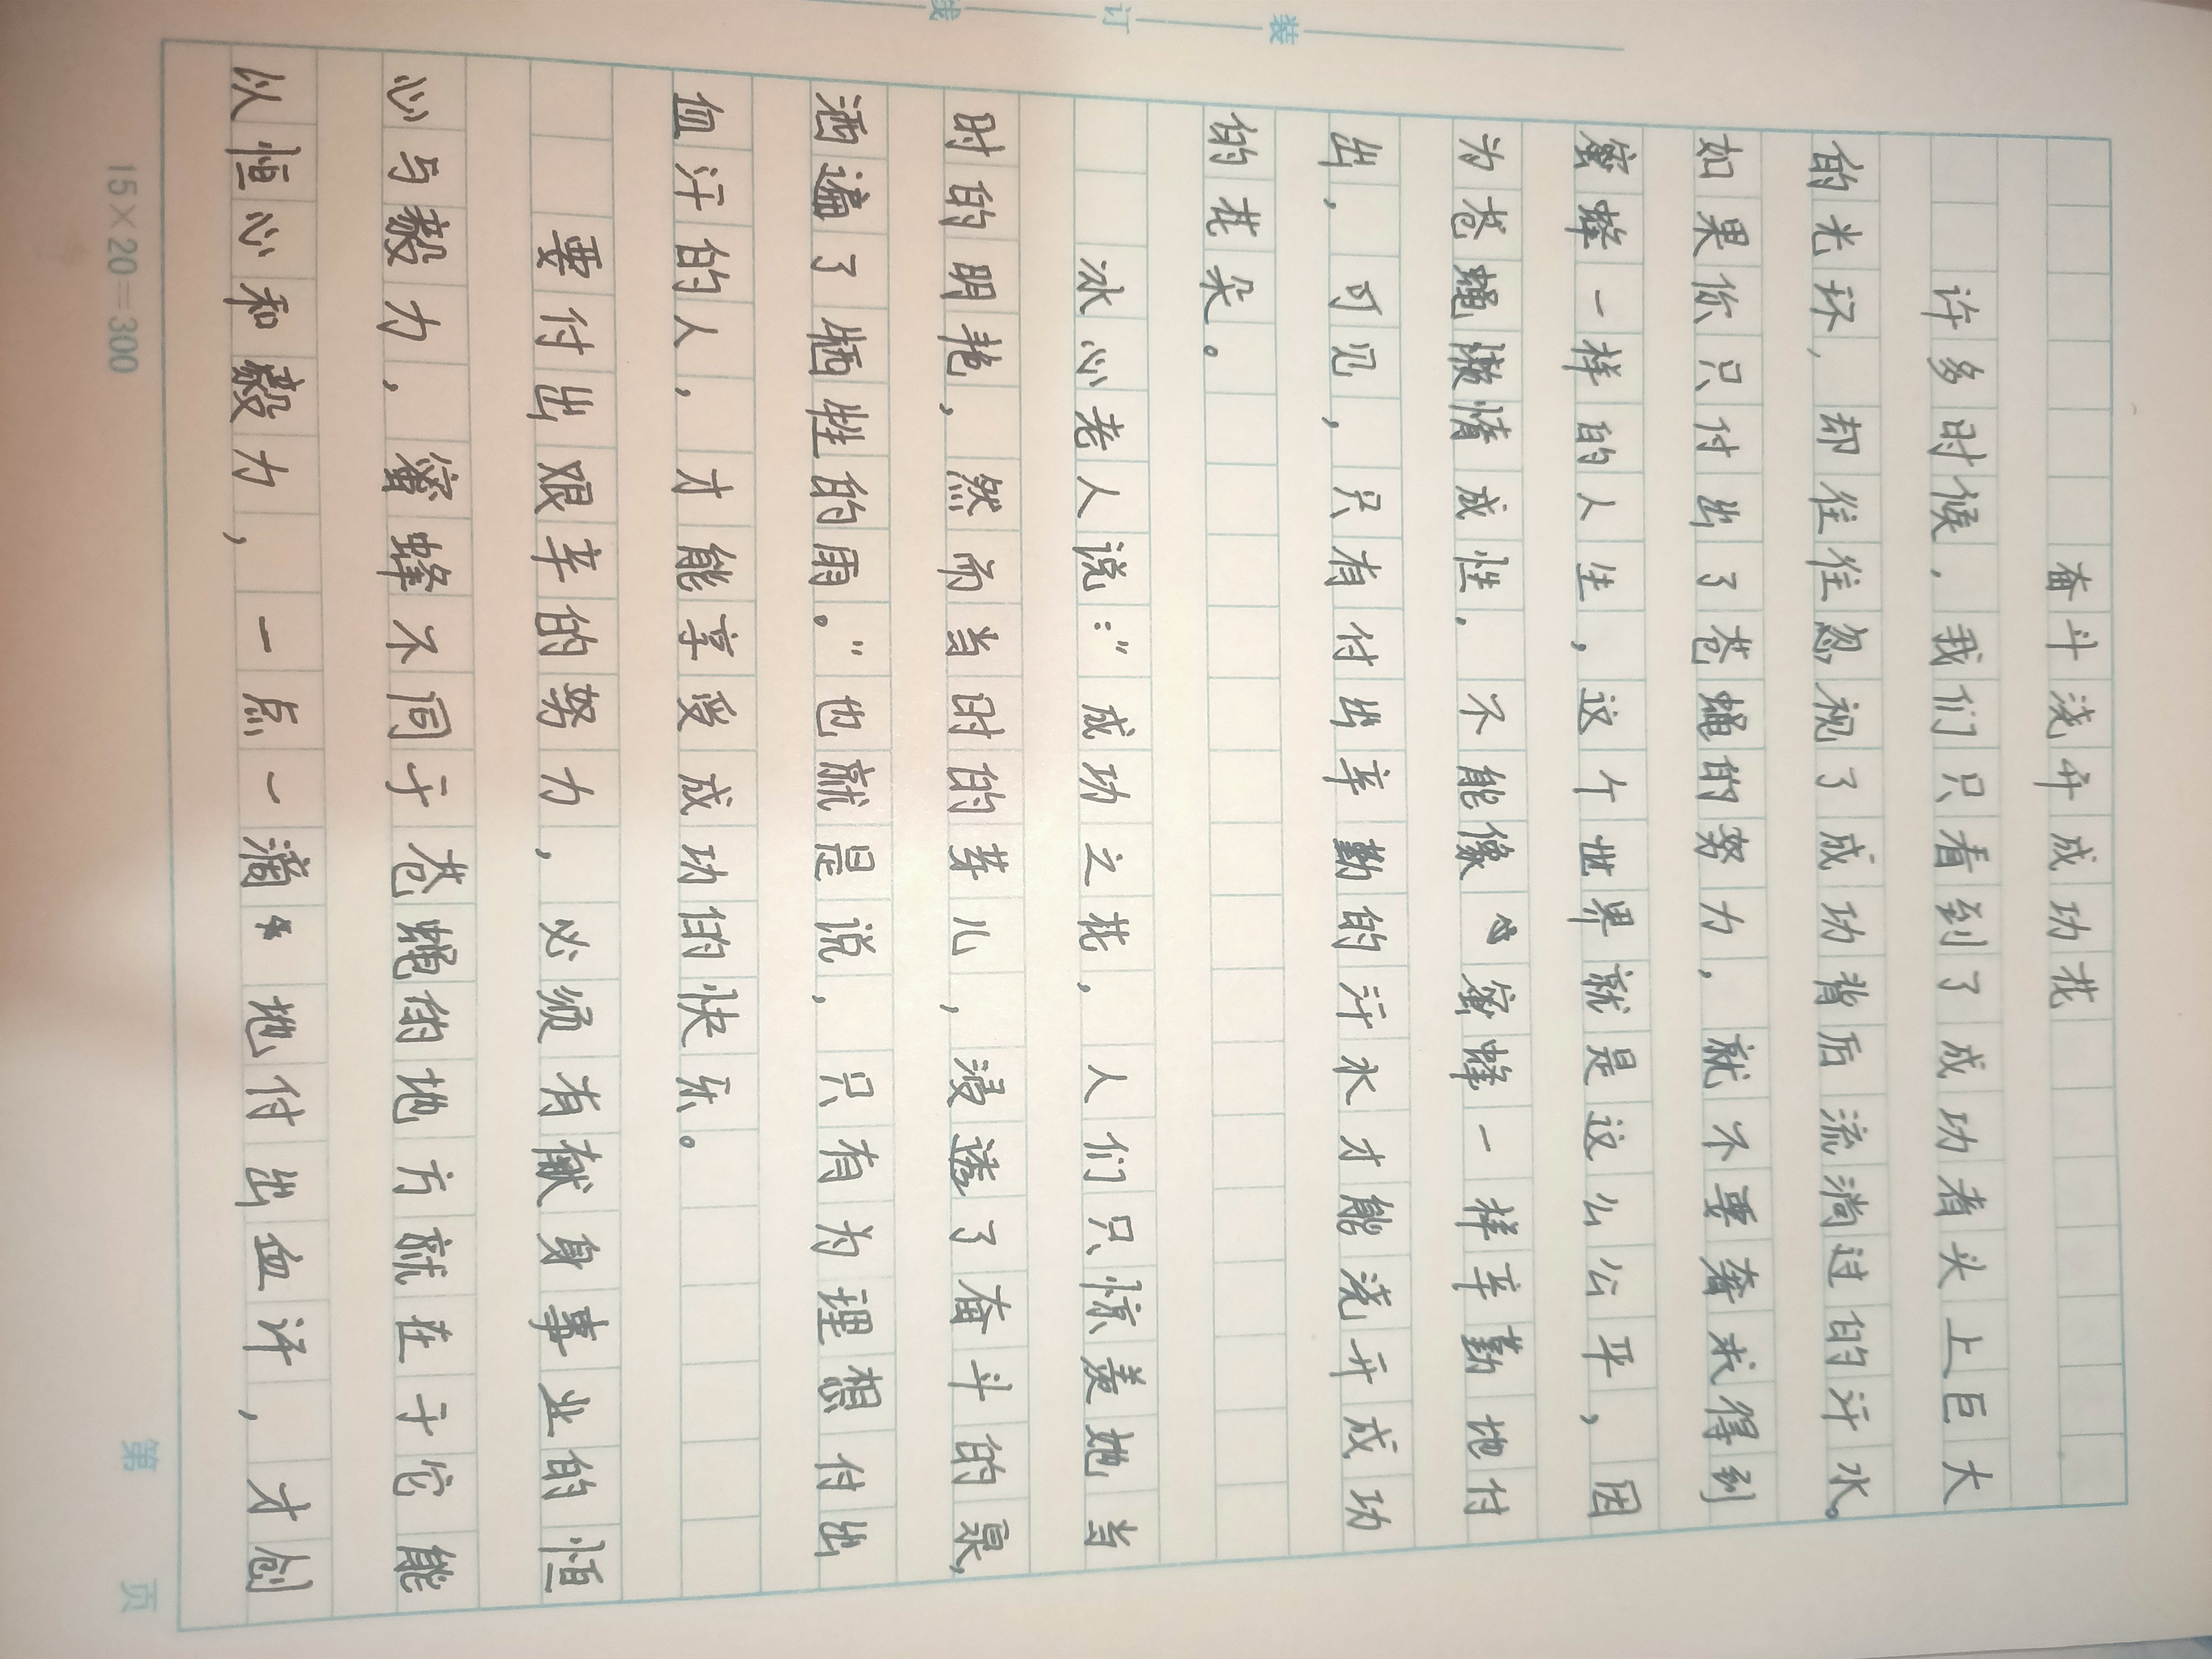 装 订 线
奋斗浇开成功花
许多时候，我们只看到了成功者头上巨大
的光环，却往往忽视了成功背后流淌过的汗水。
如果你只付出了苍蝇的努力，就不要奢求得到
蜜蜂一样的人生，这个世界就是这么公平，因
为苍蝇懒惰成性，不能像蜜蜂一样辛勤地付
出，可见，只有付出辛勤的汗水才能浇开成功
的花朵。
冰心老人说：“成功之花，人们只惊羡她当
时的明艳，然而当时的芽儿，浸透了奋斗的泉，
洒遍了牺牲的雨。”也就是说，只有为理想付出
血汗的人，才能享受成功的快乐。
要付出艰辛的努力，必须有献身事业的恒
心与毅力，蜜蜂不同于苍蝇的地方就在于它能
以恒心和毅力，一点一滴地付出血汗，才创
15×20=300 第 页